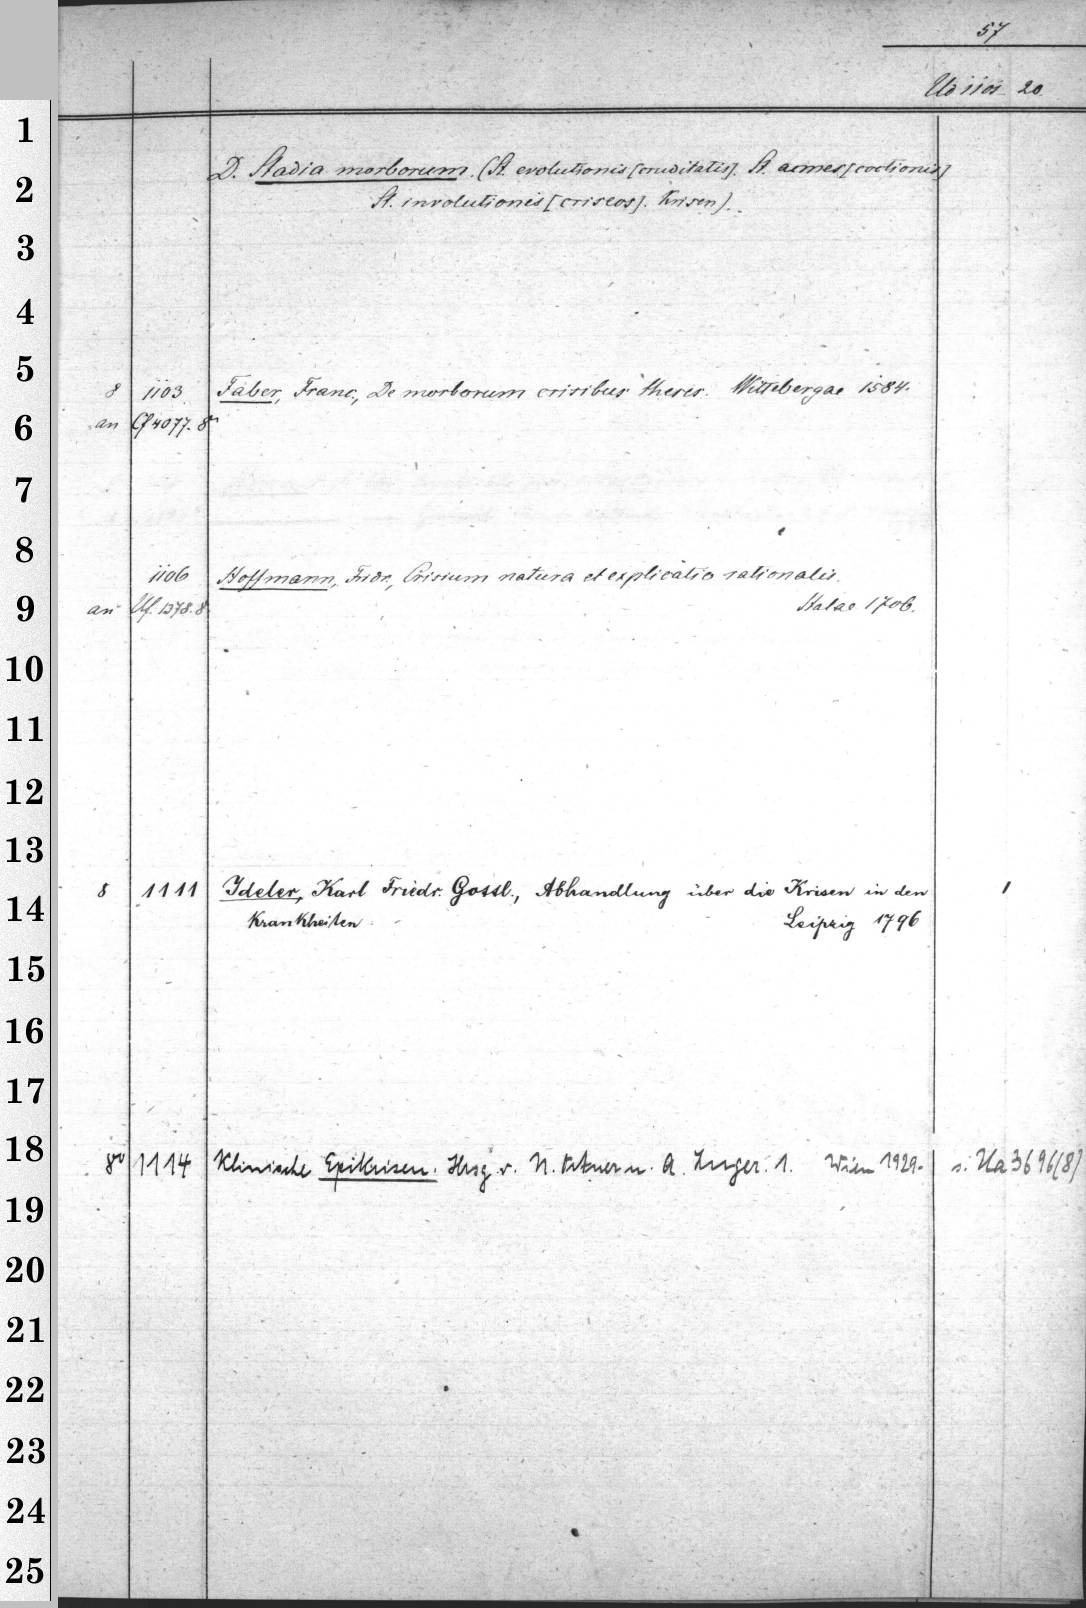 57
1101 20
1
2
3
4
5
6
7
8
9
10
11
12
13
14
15
16
17
18
19
20
21
22
23
24
25
D. Stadia morborum. (St. evolutionis [cruditatis]. St. acmes [coctionis]
St. involutionis [criseos]. Krisen).
8 1103 Faber, Franc., De morborum crisibus theses. Wittebergae 1584.
an 4077. 8°
1106 Hoffmann, Fridr., Crisium natura et explicatio rationalis.
an 1378. 8. Halae 1706.
8 1111 Ideler, Karl Friedr. Gottl., Abhandlung über die Krisen in den 1
Krankheiten. Leipzig 1796
8° 1114 Klinische Epikrisen. Hrsg. v. N. u. A. 1. Wien 1929. s. Ua 3696(8)